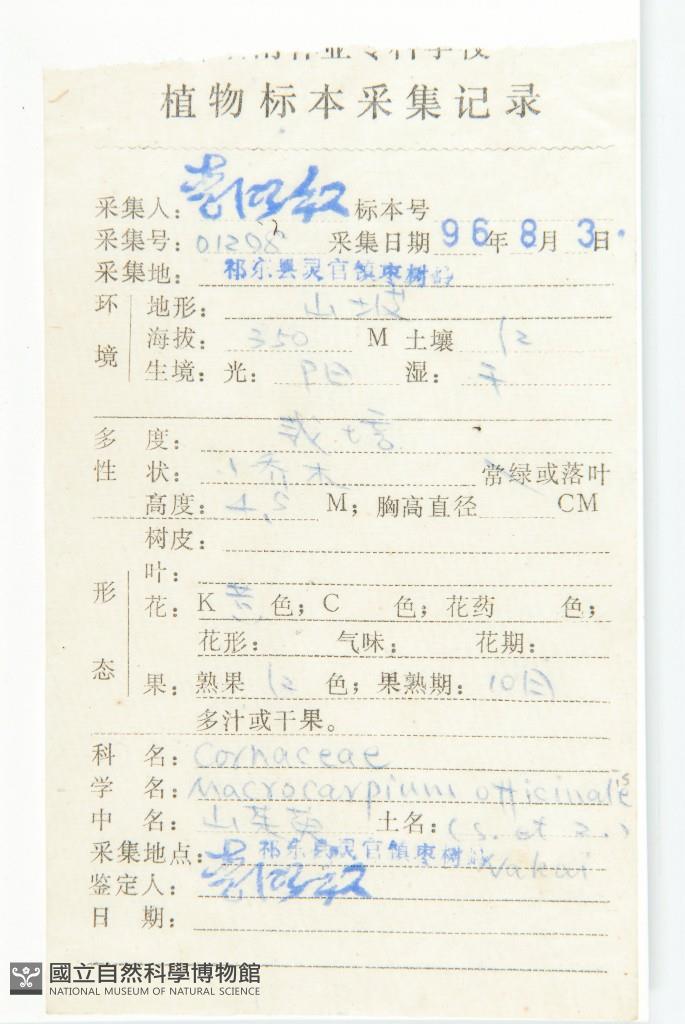 植物标本采集记录
采集人： 标本号
采集号：01298 采集日期 96年8月3日
采集地：祁东县灵官镇枣树
环境
地形：山坡
海拔：350 M 土壤 红
生境：光：阳 湿：干
多度：
性状：小乔木 常绿或落叶
高度： M；胸高直径 CM
形态
树皮：
叶：
花：K 黄 色；C 色；花药 色；
花形： 气味： 花期：
果：熟果 红 色；果熟期：10月
多汁或干果。
科名：Cornaceae
学名：Macrocarpium officinalis
中名：山茱萸 土名：(S. et Z.)
采集地点：祁东县灵官镇枣树 Nakai
鉴定人：
日期：
國立自然科學博物館
NATIONAL MUSEUM OF NATURAL SCIENCE